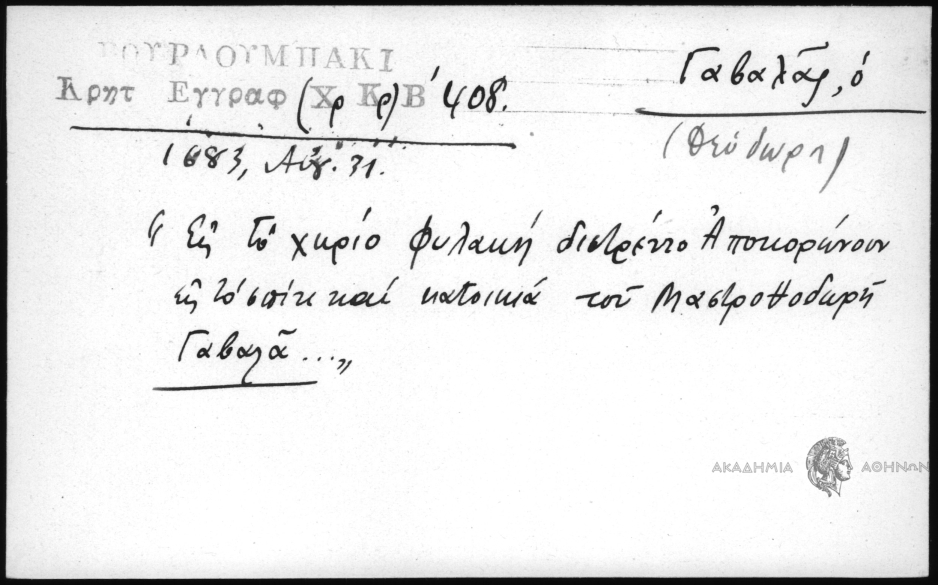 ΒΟΥΡΔΟΥΜΠΑΚΙ
Κρητ Εγγραφ (χρ Κρ) Β' 408.
Γαβαλᾶς, ὁ
(Θεύδωρη)
1683, Αὐγ. 31.
"Εἰς τὸ χωριὸ Φυλακὴ διστρέντο Ἀποκορώνου
εἰς τὸ σπίτι καὶ κατοικιά τοῦ Μαστροθοδωρῆ
Γαβαλᾶ ..."
ΑΚΑΔΗΜΙΑ ΑΘΗΝΩΝ